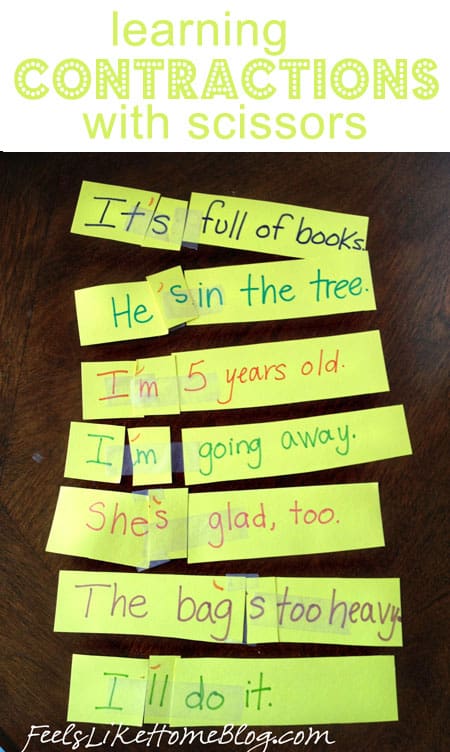 learning
CONTRACTIONS
with scissors
It's full of books.
He's in the tree.
I'm 5 years old.
I'm going away.
She's glad, too.
The bag's too heavy.
I'll do it.
FeelsLikeHomeBlog.com